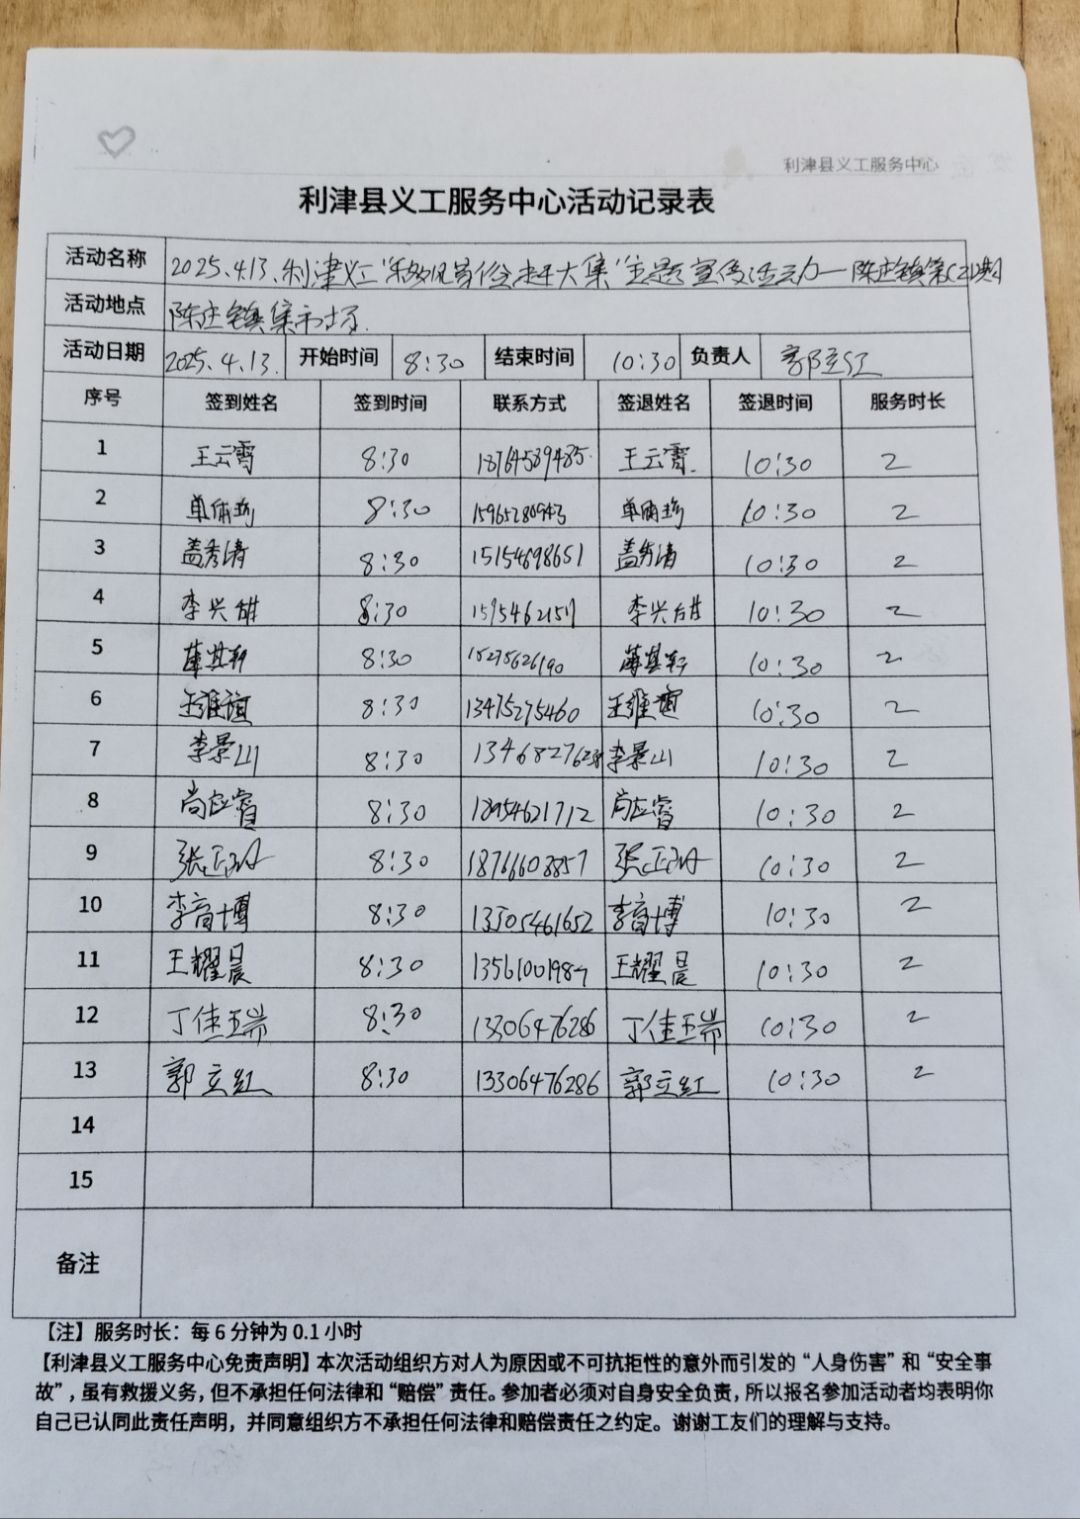 利津县义工服务中心
利津县义工服务中心活动记录表
活动名称 2025.4.13.利津义工"移风易俗赶大集"主题宣传活动—陈庄镇第
活动地点 陈庄镇集市场.
活动日期 2025.4.13. 开始时间 8:30 结束时间 10:30 负责人 郭立红
序号 签到姓名 签到时间 联系方式 签退姓名 签退时间 服务时长
1 王云霄 8:30 18764589485. 王云霄. 10:30 2
2 8:30 15965280943 10:30 2
3 盖秀清 8:30 15154698651 盖秀清 10:30 2
4 李兴 8:30 李兴 10:30 2
5 8:30 15275626190 10:30 2
6 8:30 13475275460 10:30 2
7 李景山 8:30 李景山 10:30 2
8 尚应睿 8:30 18954621712 尚应睿 10:30 2
9 张 8:30 18766608857 张 10:30 2
10 李 博 8:30 13305461652 李 博 10:30 2
11 王耀晨 8:30 13561001987 王耀晨 10:30 2
12 丁佳瑞 8:30 13306476286 丁佳瑞 10:30 2
13 郭立红 8:30 13306476286 郭立红 10:30 2
14
15
备注
【注】服务时长：每 6 分钟为 0.1 小时
【利津县义工服务中心免责声明】本次活动组织方对人为原因或不可抗拒性的意外而引发的“人身伤害”和“安全事
故”，虽有救援义务，但不承担任何法律和“赔偿”责任。参加者必须对自身安全负责，所以报名参加活动者均表明你
自己已认同此责任声明，并同意组织方不承担任何法律和赔偿责任之约定。谢谢工友们的理解与支持。